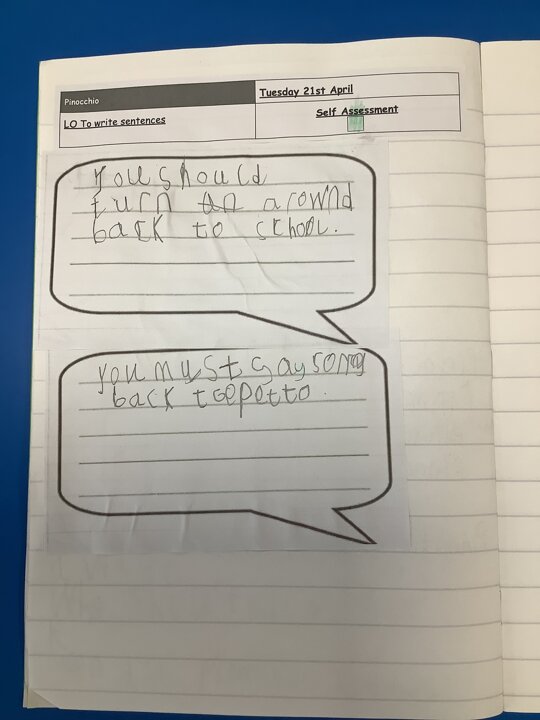 Pinocchio
Tuesday 21st April
LO To write sentences
Self Assessment
you should
turn an arownd
back to school.
you must say sorry
back to